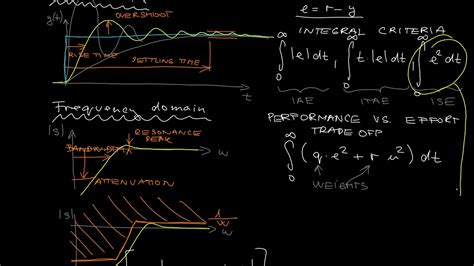 y(t)
OVERSHOOT
RISE TIME
SETTLING TIME
t
e = r - y
INTEGRAL CRITERIA
∫₀^∞ |e| dt , ∫₀^∞ t |e| dt , ∫₀^∞ e² dt
IAE ITAE ISE
Frequency domain
|S|
RESONANCE PEAK
BANDWIDTH
ω
ATTENUATION
PERFORMANCE VS. EFFORT
TRADE OFF
∫₀^∞ (q e² + r u²) dt
WEIGHTS
|S|
1/W
ω